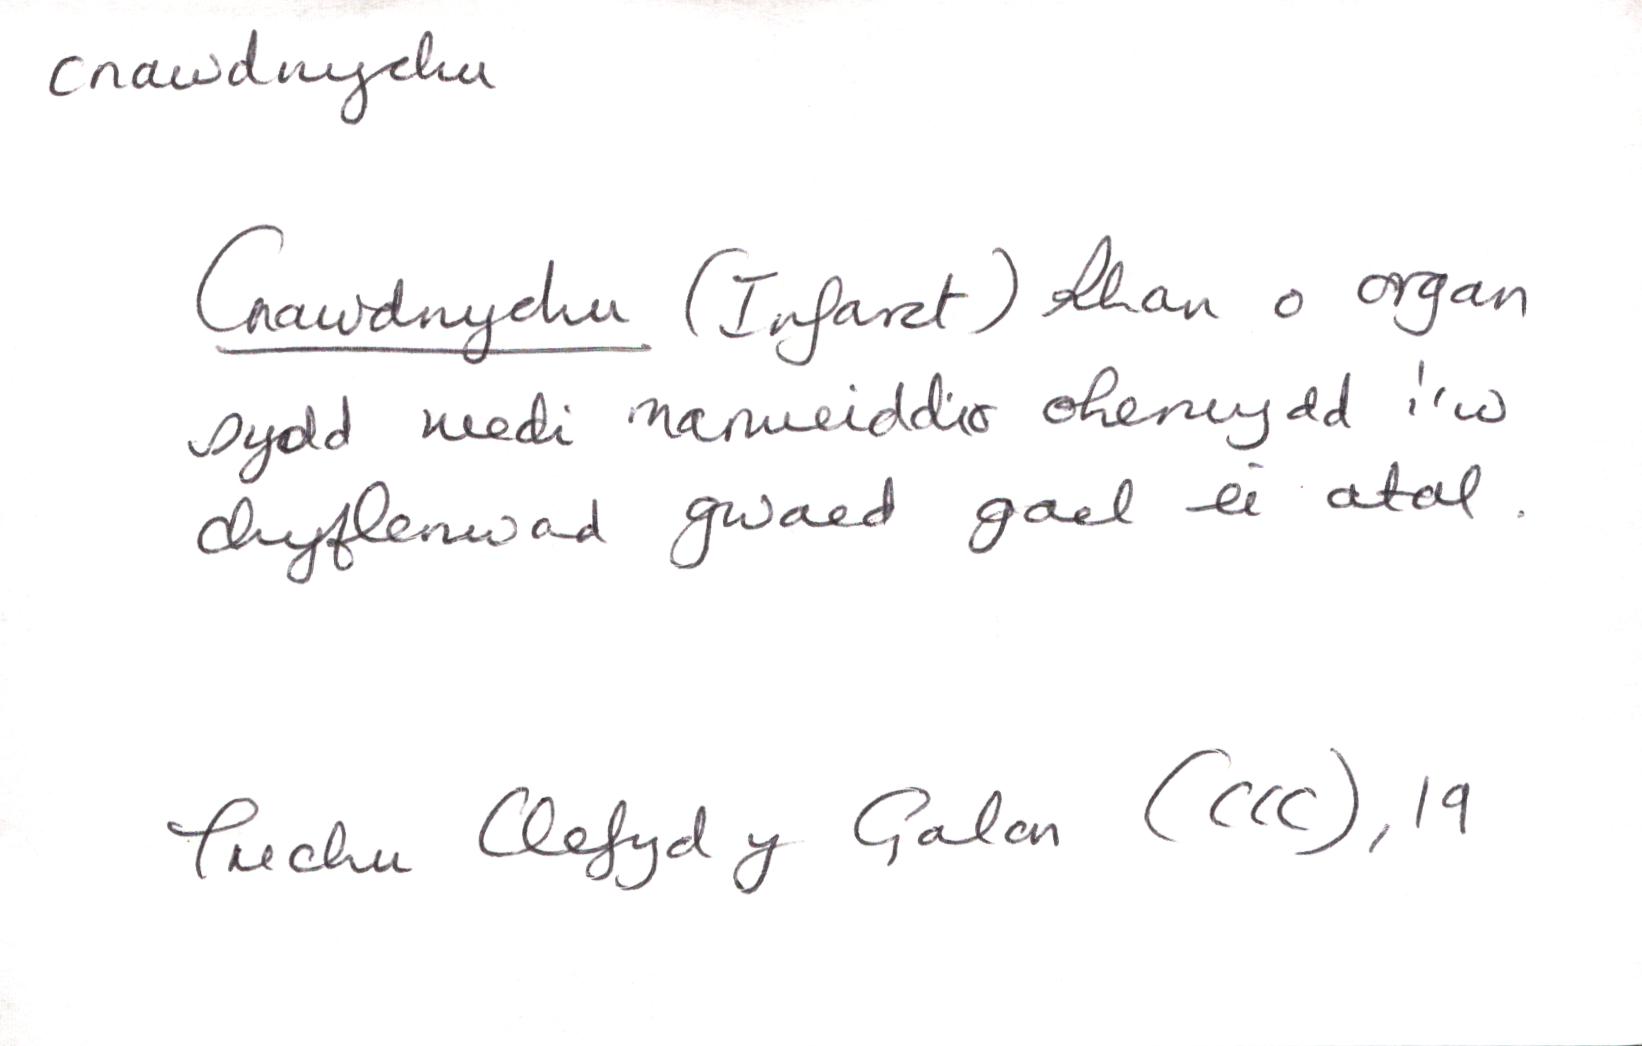 cnawdnychu
Cnawdnychu (Infarct) Rhan o organ
sydd wedi marweiddio oherwydd i'w
chyflenwad gwaed gael ei atal.
Trechu Clefyd y Galon (CCC), 19